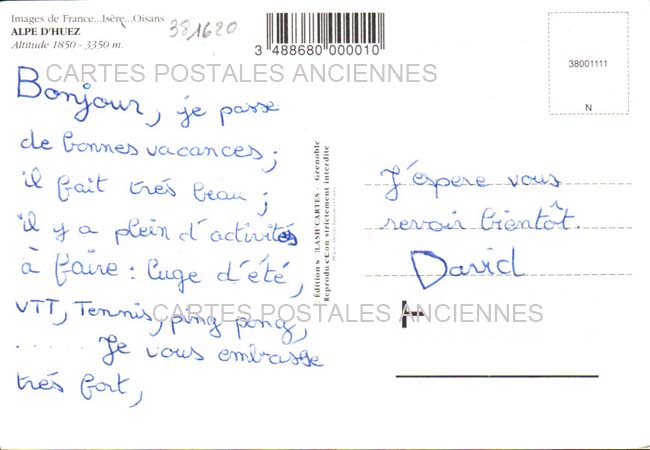 Images de France...Isère...Oisans
ALPE D'HUEZ
Altitude 1850 - 3350 m.
381620
3 488680 000010
38001111
N
CARTES POSTALES ANCIENNES
Bonjour, je passe
de bonnes vacances;
il fait trés beau;
il y a plein d'activités
à faire: luge d'été,
VTT, Tennis, ping pong,
...... Je vous embrasse
trés fort,
Éditions FLASH CARTES - Grenoble
Reproduction strictement interdite
J'éspere vous
revoir bientôt.
David
CARTES POSTALES ANCIENNES